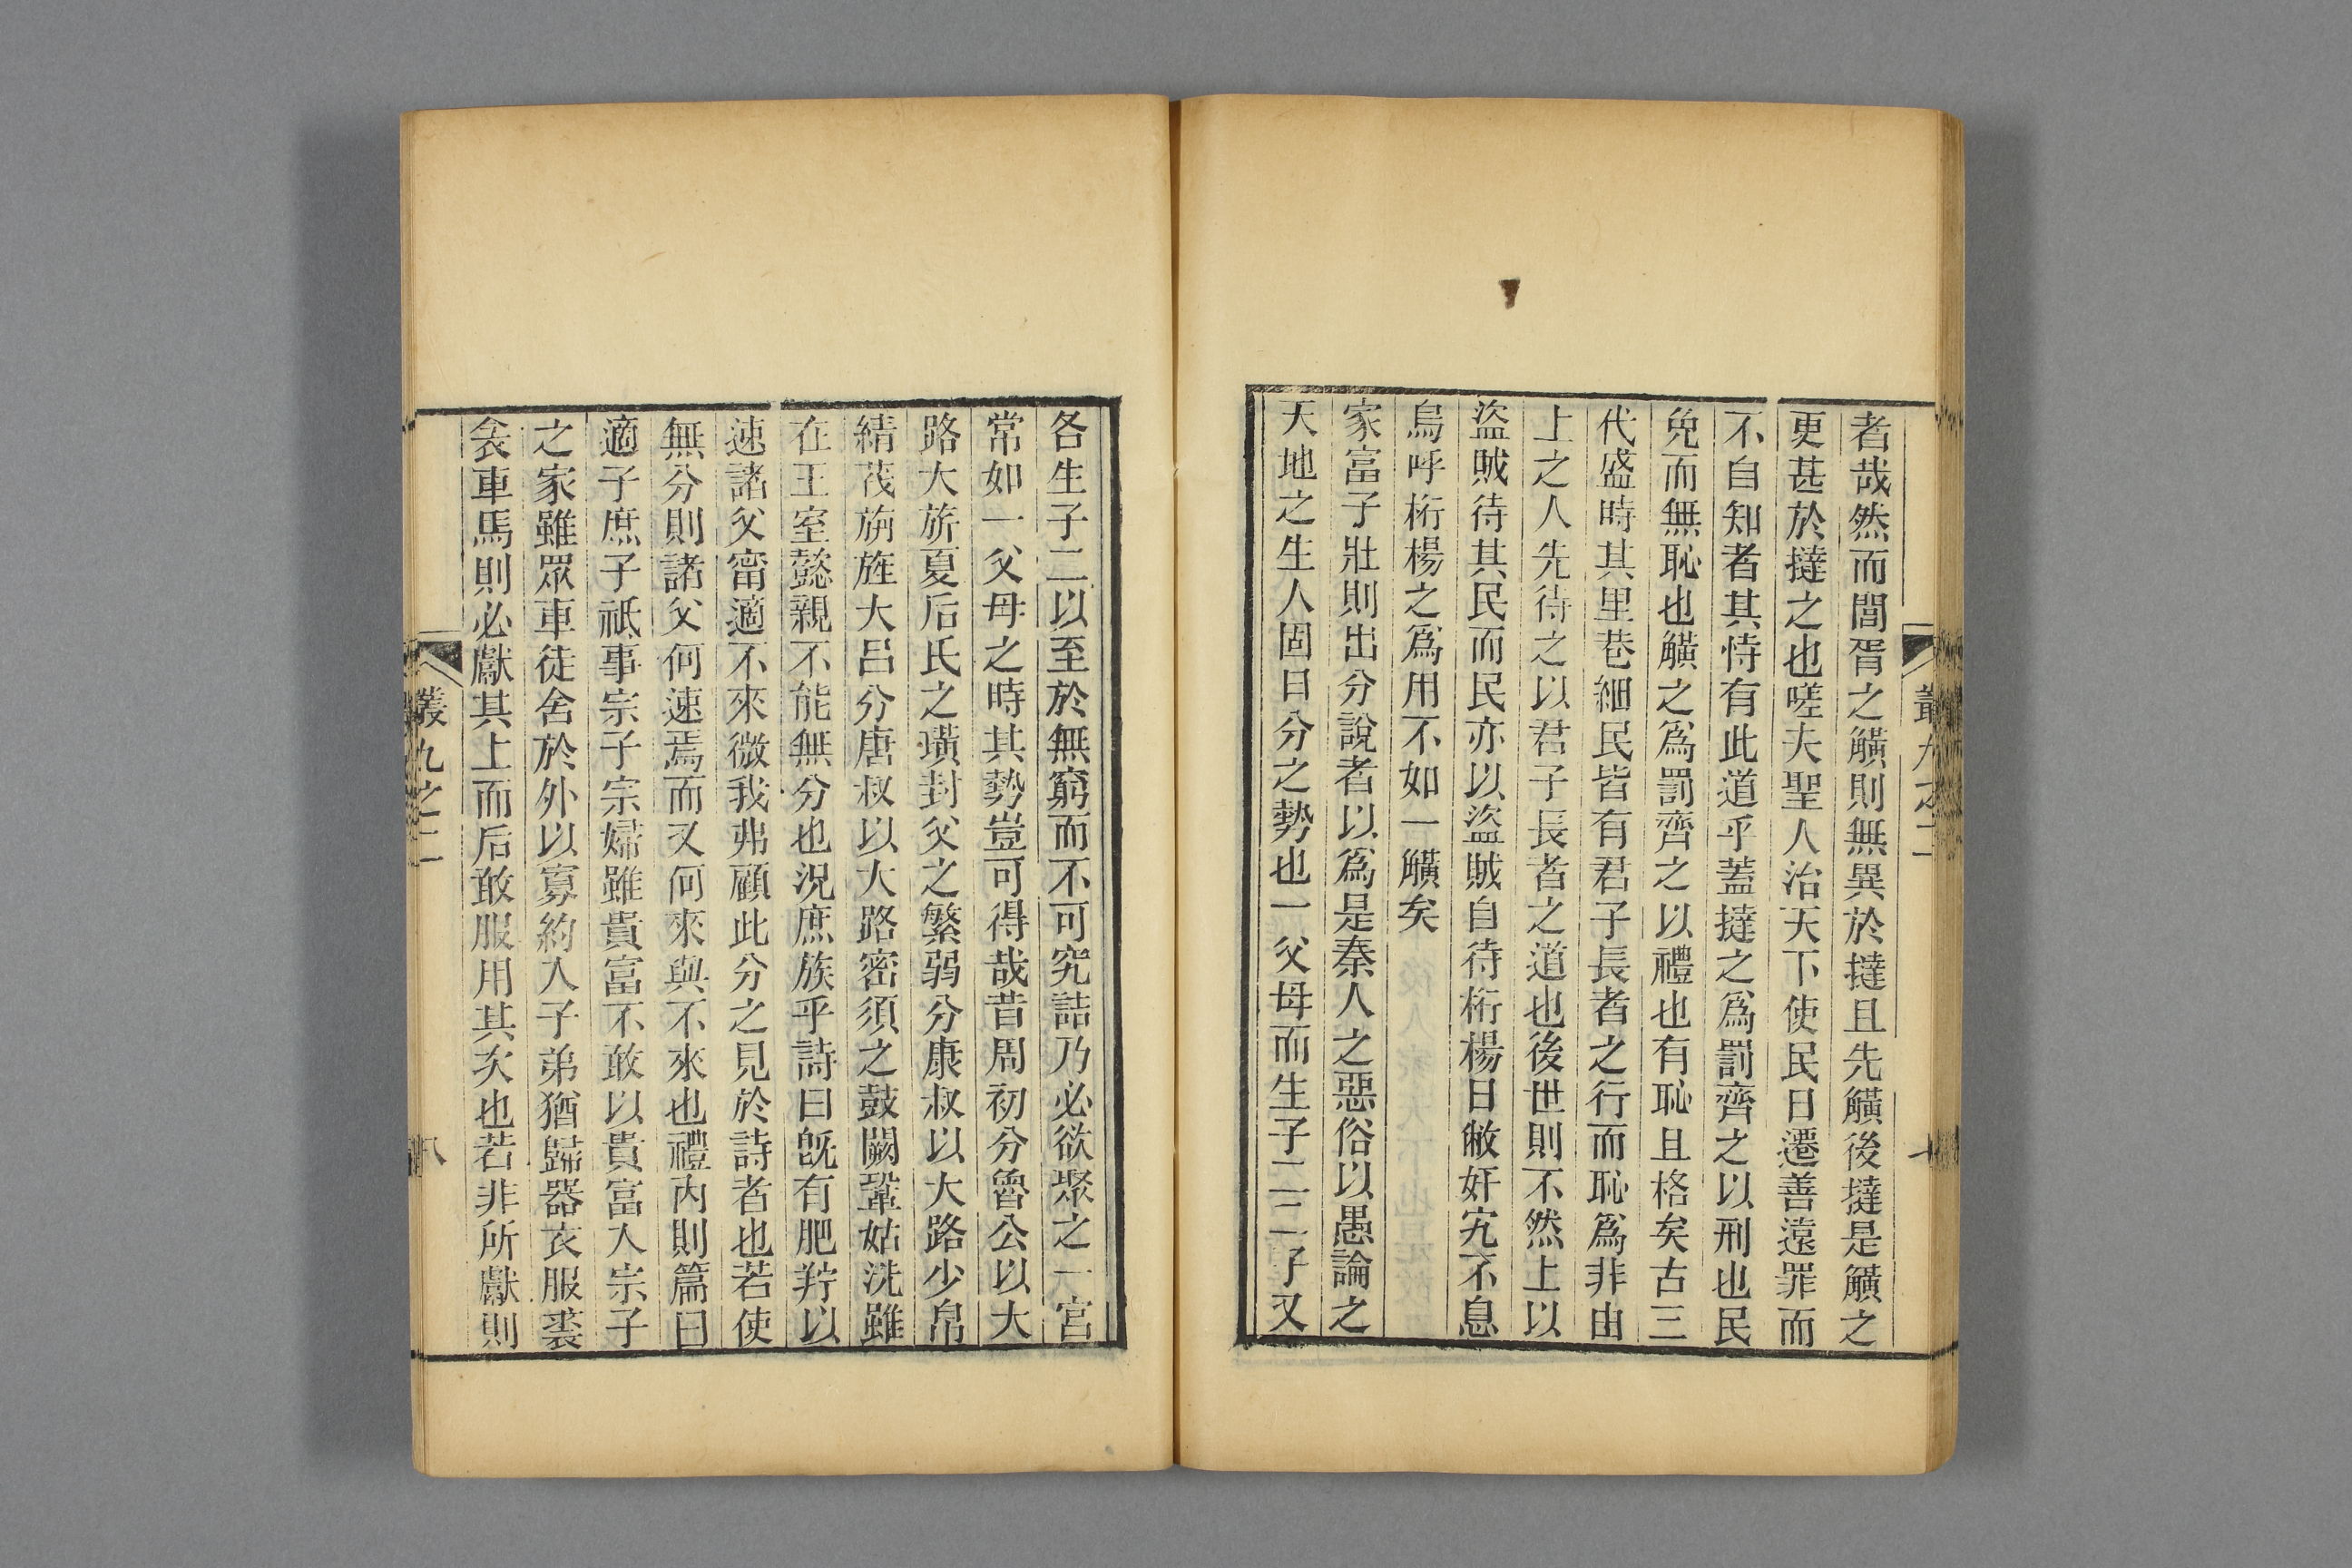 者哉然而閭胥之觵則無異於撻且先觵後撻是觵之
更甚於撻之也嗟夫聖人治天下使民日遷善遠罪而
不自知者其恃有此道乎蓋撻之爲罰齊之以刑也民
免而無恥也觵之爲罰齊之以禮也有恥且格矣古三
代盛時其里巷細民皆有君子長者之行而恥爲非由
上之人先待之以君子長者之道也後世則不然上以
盜賊待其民而民亦以盜賊自待桁楊日敝奸宄不息
烏呼桁楊之爲用不如一觵矣
家富子壯則出分說者以爲是秦人之惡俗以愚論之
天地之生人固日分之勢也一父母而生子二二子又
各生子二以至於無窮而不可究詰乃必欲聚之一宮
常如一父母之時其勢豈可得哉昔周初分魯公以大
路大旂夏后氏之璜封父之繁弱分康叔以大路少帛
綪茷旃旌大呂分唐叔以大路密須之鼓闕鞏姑洗雖
在王室懿親不能無分也況庶族乎詩曰旣有肥羜以
速諸父甯適不來微我弗顧此分之見於詩者也若使
無分則諸父何速焉而又何來與不來也禮內則篇曰
適子庶子祇事宗子宗婦雖貴富不敢以貴富入宗子
之家雖眾車徒舍於外以寡約入子弟猶歸器衣服裘
衾車馬則必獻其上而后敢服用其次也若非所獻則
叢九之二
八